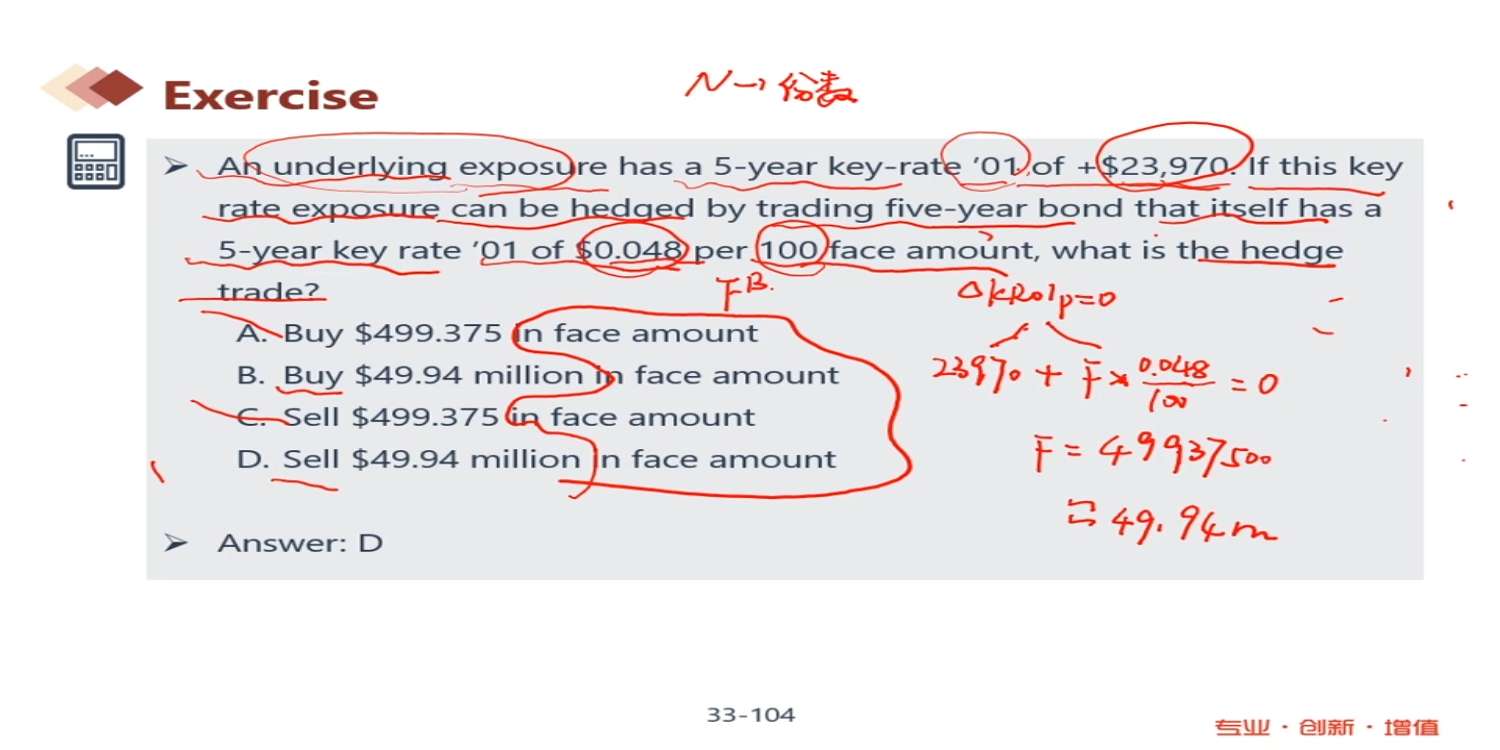 Exercise
N→份数
➢ An underlying exposure has a 5-year key-rate ‘01 of +$23,970. If this key
rate exposure can be hedged by trading five-year bond that itself has a
5-year key rate ‘01 of $0.048 per 100 face amount, what is the hedge
trade?
A. Buy $499.375 in face amount
B. Buy $49.94 million in face amount
C. Sell $499.375 in face amount
D. Sell $49.94 million in face amount
F^B.
ΔKR01p=0
23970 + F × 0.048/100 = 0
F = 49937500
≈ 49.94m
➢ Answer: D
33-104
专业·创新·增值